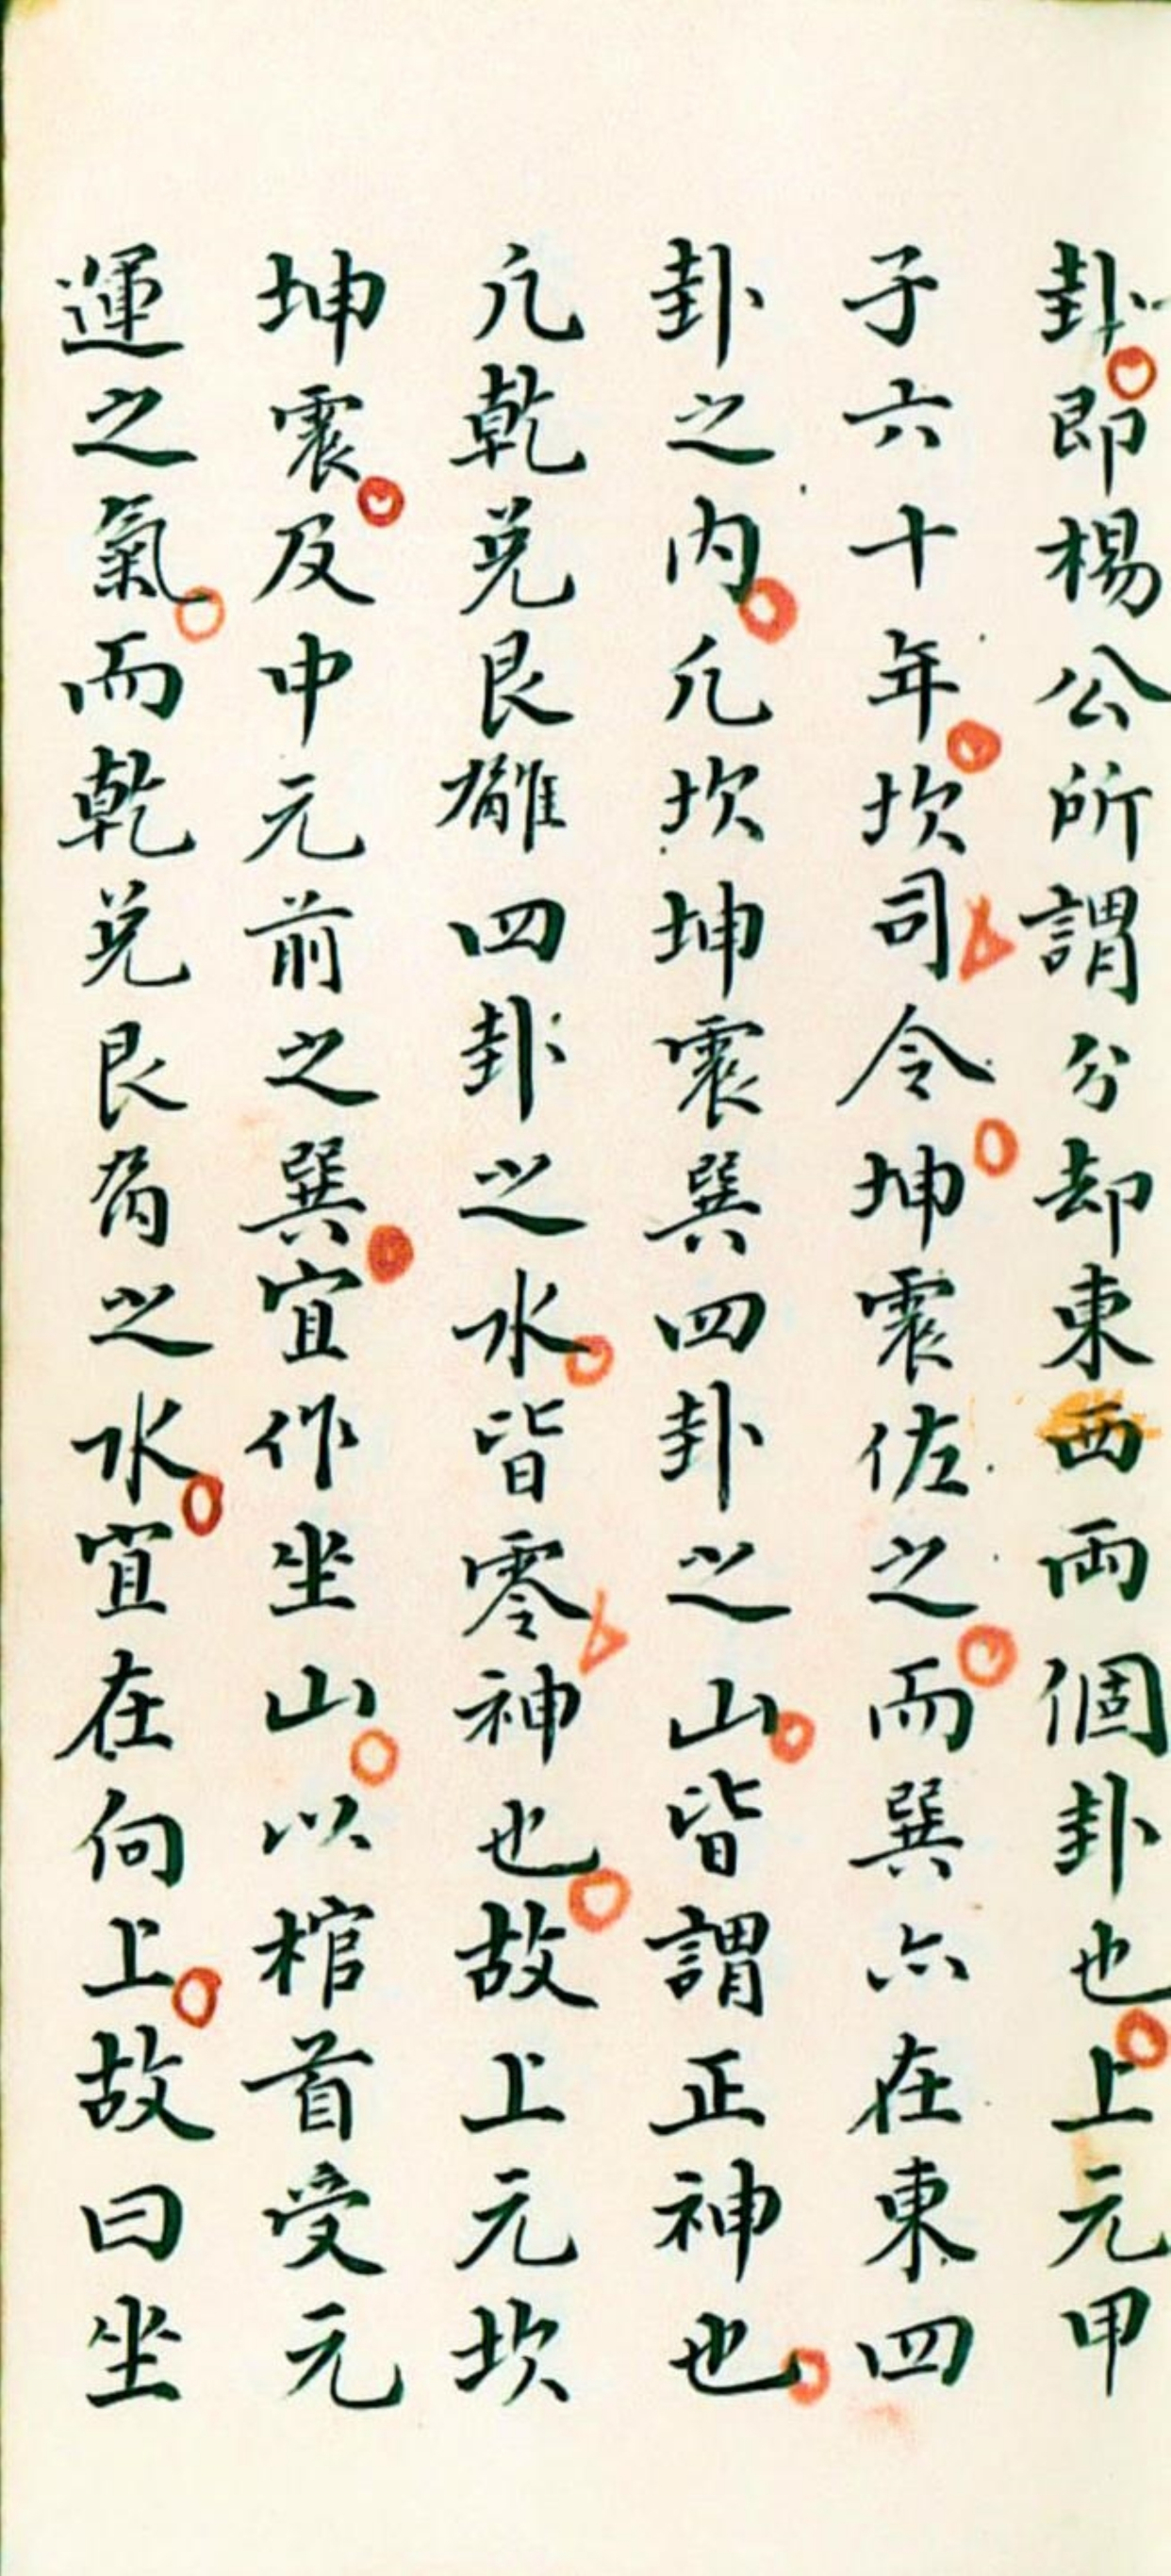 卦即楊公所謂分却東西兩個卦也上元甲
子六十年坎司令坤震佐之而巽亦在東四
卦之內凢坎坤震巽四卦之山皆謂正神也
凢乾兌艮離四卦之水皆零神也故上元坎
坤震及中元前之巽宜作坐山以棺首受元
運之氣而乾兌艮离之水宜在向上故曰坐